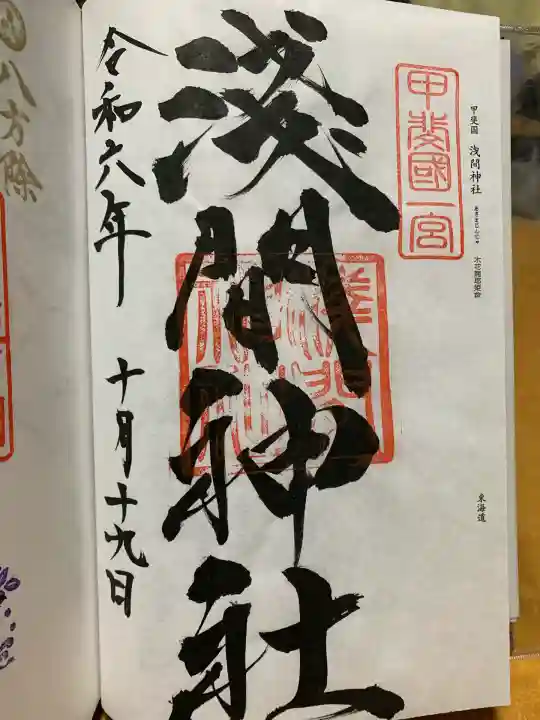 甲斐国 浅間神社
木花開耶姫命
東海道
甲斐國一宮
淺間神社
令和六年 十月十九日
八方除